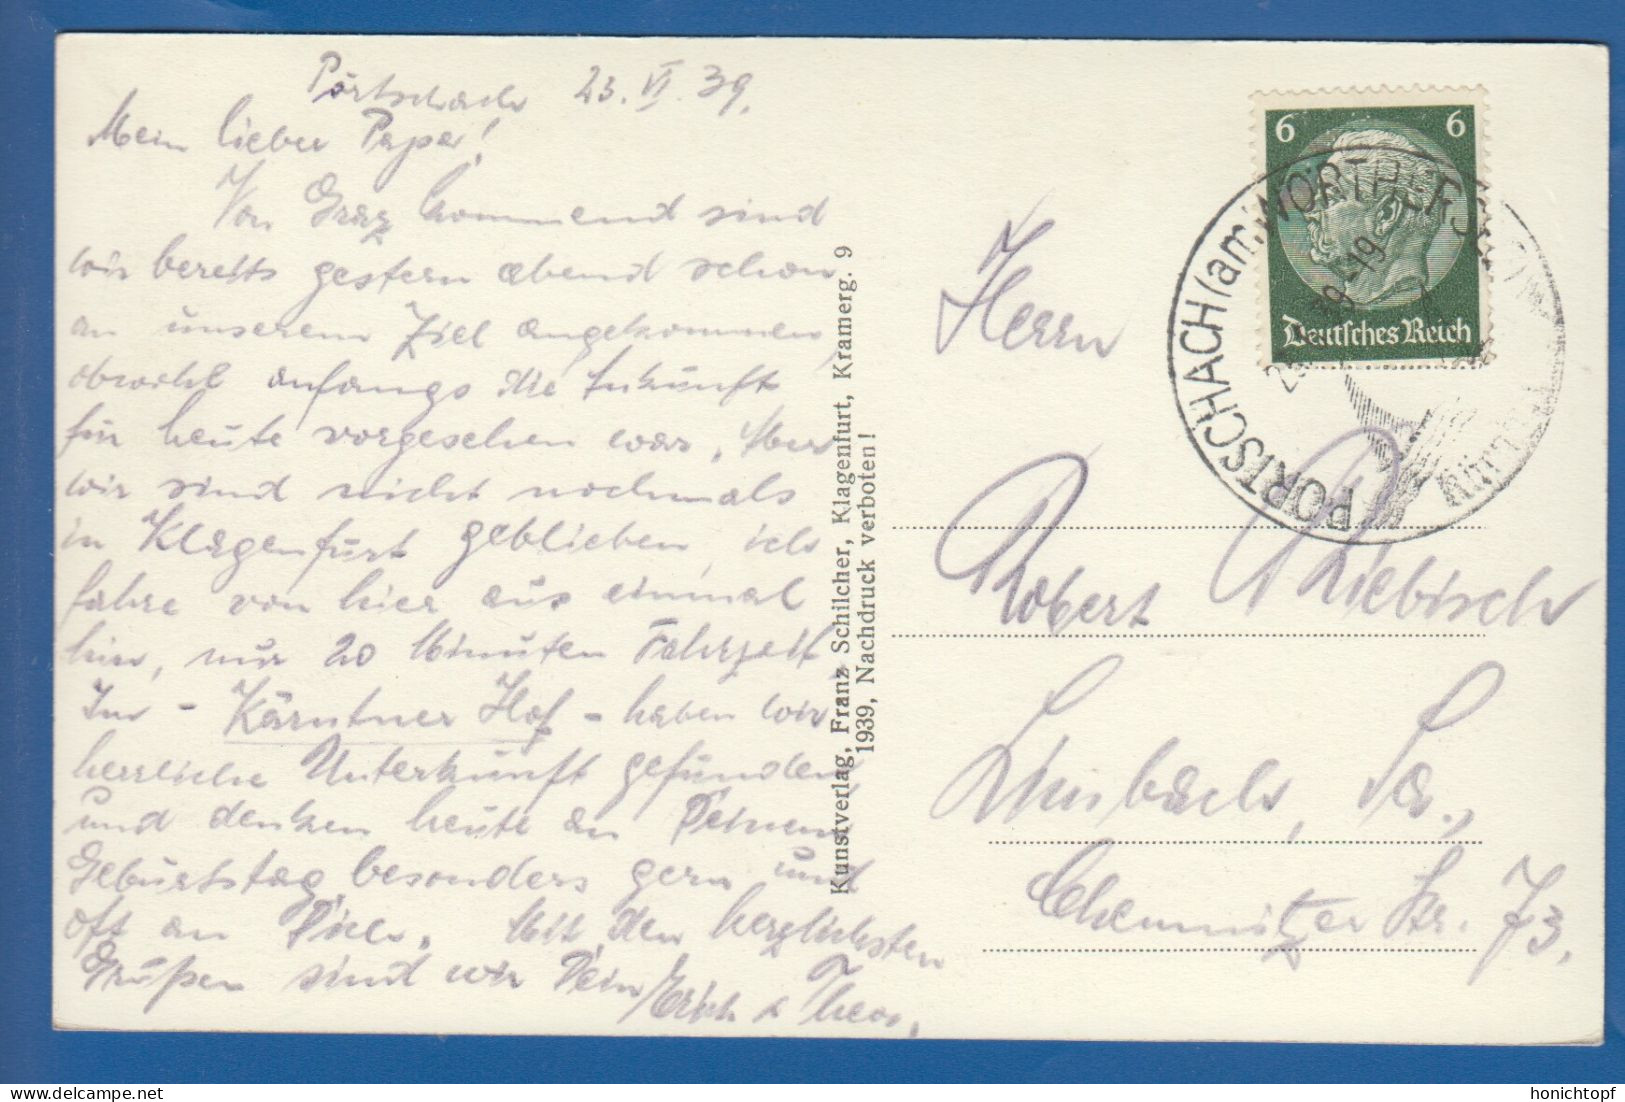 Pörtschach 23. VI. 39.
Mein lieber Papa!
Von Graz kommend sind
wir bereits gestern abend schon
an unserem Ziel angekommen,
obwohl anfangs die Ankunft
für heute vorgesehen war. Aber
wir sind nicht nochmals
in Klagenfurt geblieben, ich
fahre von hier aus einmal
hin, nur 20 Minuten Fahrzeit
Im - Kärntner Hof - haben wir
herrliche Unterkunft gefunden
und denken heute an Deinem
Geburtstag besonders gern und
oft an Dich. Mit den herzlichsten
Grüßen sind wir Dein Erich & Theo.
Kunstverlag, Franz Schilcher, Klagenfurt, Kramerg. 9
1939, Nachdruck verboten!
6 6
Deutsches Reich
PÖRTSCHACH (am WÖRTHERSEE)
Herrn
Robert Riebisch
Limbach, Sa.,
Chemnitzer Str. 73.
honichtopf